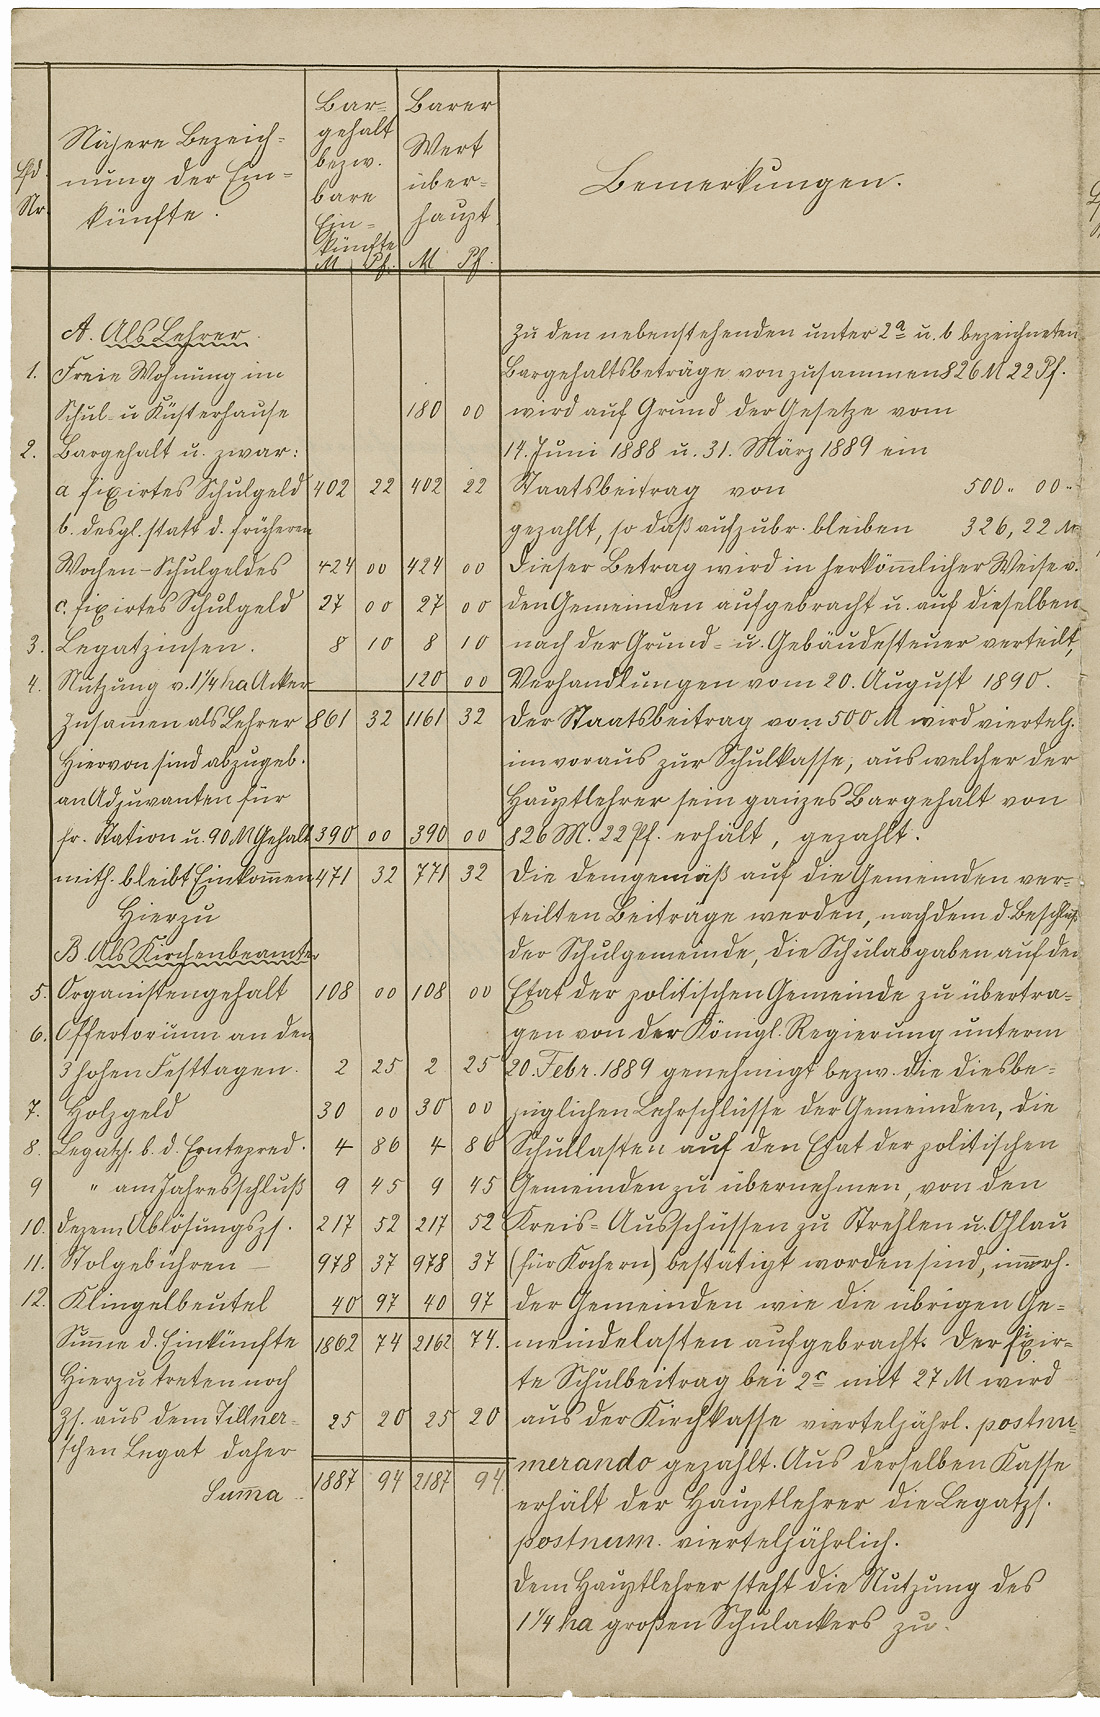 Lfd. Nr.
Nähere Bezeich-
nung der Ein-
künfte.
Bar-
gehalt
bezw.
bare
Ein-
künfte
M Pf.
Barer
Wert
über-
haupt
M Pf.
Bemerkungen.
A. Als Lehrer.
1. Freie Wohnung im
Schul- u Küsterhause 180 00
2. Bargehalt u. zwar:
a fixirtes Schulgeld 402 22 402 22
b. desgl. statt d. früheren
Wochen-Schulgeldes 424 00 424 00
c. fixirtes Schulgeld 27 00 27 00
3. Legatzinsen. 8 10 8 10
4. Nutzung v. 1 1/4 ha Acker 120 00
Zusamen als Lehrer 861 32 1161 32
Hiervon sind abzugeb.
an Adjuvanten für
fr. Station u. 90 M Gehalt 390 00 390 00
mith. bleibt Einkom̄en 471 32 771 32
Hierzu
B Als Kirchenbeamter
5. Organistengehalt 108 00 108 00
6. Offertorium an den
3 hohen Festtagen. 2 25 2 25
7. Holzgeld 30 00 30 00
8. Legatzs. b. d. Erntepred. 4 86 4 86
9 " am Jahresschluß 9 45 9 45
10. Dezem Ablösungszs. 217 52 217 52
11. Stolgebühren — 978 37 978 37
12. Klingelbeutel 40 97 40 97
Sum̄e d. Einkünfte 1862 74 2162 74.
Hierzu treten noch
Zs. aus dem Tillner- 25 20 25 20
schen Legat daher
Sum̄a 1887 94 2187 94.
Zu den nebenstehenden unter 2a u. b bezeichneten
Bargehaltsbeträge von zusammen 826 M 22 Pf.
wird auf Grund der Gesetze vom
14. Juni 1888 u. 31. März 1889 ein
Staatsbeitrag von 500 " 00 "
gezahlt, so daß aufzubr. bleiben 326, 22 M
Dieser Betrag wird in herköm̄licher Weise v.
den Gemeinden aufgebracht u. auf dieselben
nach der Grund- u. Gebäudesteuer verteilt,
Verhandlungen vom 20. August 1890.
Der Staatsbeitrag von 500 M wird viertelj.
im voraus zur Schulkasse, aus welcher der
Hauptlehrer sein ganzes Bargehalt von
826 M. 22 Pf. erhält, gezahlt.
Die demgemäß auf die Gemeinden ver-
teilten Beiträge werden, nachdem d. Beschluß
der Schulgemeinde, die Schulabgaben auf den
Etat der politischen Gemeinde zu übertra-
gen von der Königl. Regierung unterm
20. Febr. 1889 genehmigt bezw. die diesbe-
züglichen Lehrschlüsse der Gemeinden, die
Schullasten auf den Etat der politischen
Gemeinden zu übernehmen, von den
Kreis-Ausschüssen zu Strehlen u. Ohlau
(für Kochern) bestätigt worden sind, innerh.
der Gemeinden wie die übrigen Ge-
meindelasten aufgebracht. Der fixir-
te Schulbeitrag bei 2c mit 27 M wird
aus der Kirchkasse vierteljährl. postnu-
merando gezahlt. Aus derselben Kasse
erhält der Hauptlehrer die Legatzs.
postnum. vierteljährlich.
Dem Hauptlehrer steht die Nutzung des
1 1/4 ha großen Schulackers zu.